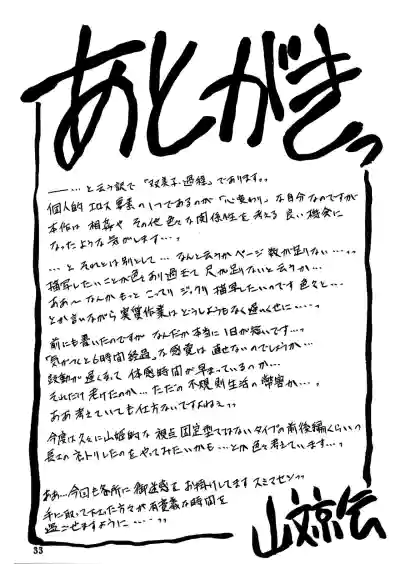 あとがきっ
――…と云う訳で『双美子過程』であります。。
個人的エロス要素の1つであるのが「心変わり」な自分なのですが
本作は相姦や その他色々な関係性を考える良い機会に
なったような気がします…。
…と それとは別として…なんと云うかページ数が足りない…。。
描写したいことが色々あり過ぎて尺が足りないと云うか…
ああ〜なんかもっとこってりジックリ描写したいのです 色々と…
とか言いながら実質作業はどうしようもなく遅いくせに…
前にも書いたのですが なんだか本当に1日が短いです…。
「気がつくと6時間経過」な感覚は直せないのでしょうか…
鼓動が遅くなって体感時間が早まっているのか…
それだけ老けたのか…ただの不規則生活の弊害か…。
ああ考えていても仕方ないですよねぇ。。
今度は久々に山姫的な視点固定型でではないタイプの前後編くらいの
長さのネトリしたのをやってみたいかも…とか色々考えています…。
ああ…今回も各所に御迷惑をお掛けしてますスミマセン。。
手に取って下さった方々が有意義な時間を
過ごせますように…。。
山文京伝
33